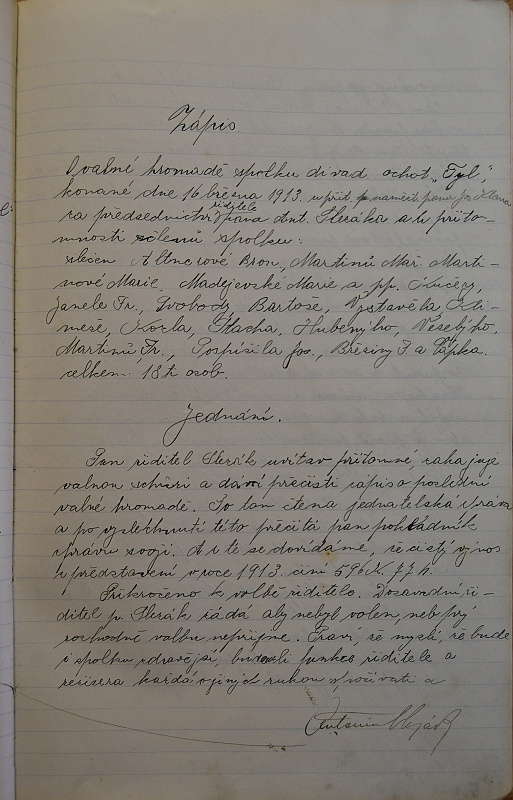 Zápis
O valné hromadě spolku divad. ochot. "Tyl",
konané dne 16 března 1913. v přít. p. naměst. pana Jos.
za předsednictví ředitele pana Ant. Slezáka a u příto-
mnosti členů spolku:
slečen Altnerové Bron, Martinů Mař. Marti-
nové Marie, Madejevské Marie a pp. Kučery,
Janele Fr., Svobody, Bartoše, Vystavěla, Kli-
meše, Kozla, Hlacha, Hubenýho, Veselýho,
Martinů Fr., Pospíšila Jos., Březiny F. a Pápka.
celkem: 18ti osob.
Jednání.
Pan ředitel Slezák uvítav přítomné, zahajuje
valnou schůzi a dává přečísti zápis o poslední
valné hromadě. Po tom čtena jednatelská zpráva
a po vyslechnutí této přečítá pan pokladník
zprávu svoji. A i te se dovídáme, že čistý výnos
z představení v roce 1913. činí 596 K. 77 h.
Přikročeno k volbě ředitele. Dosavadní ře-
ditel p. Slezák žádá aby nebyl volen, neb prý
rozhodně volbu nepřijme. Praví, že myslí, že bude
i spolku zdravější, budouli funkce ředitele a
režiséra každá v jiných rukou spočívati a
Antonín Slezák